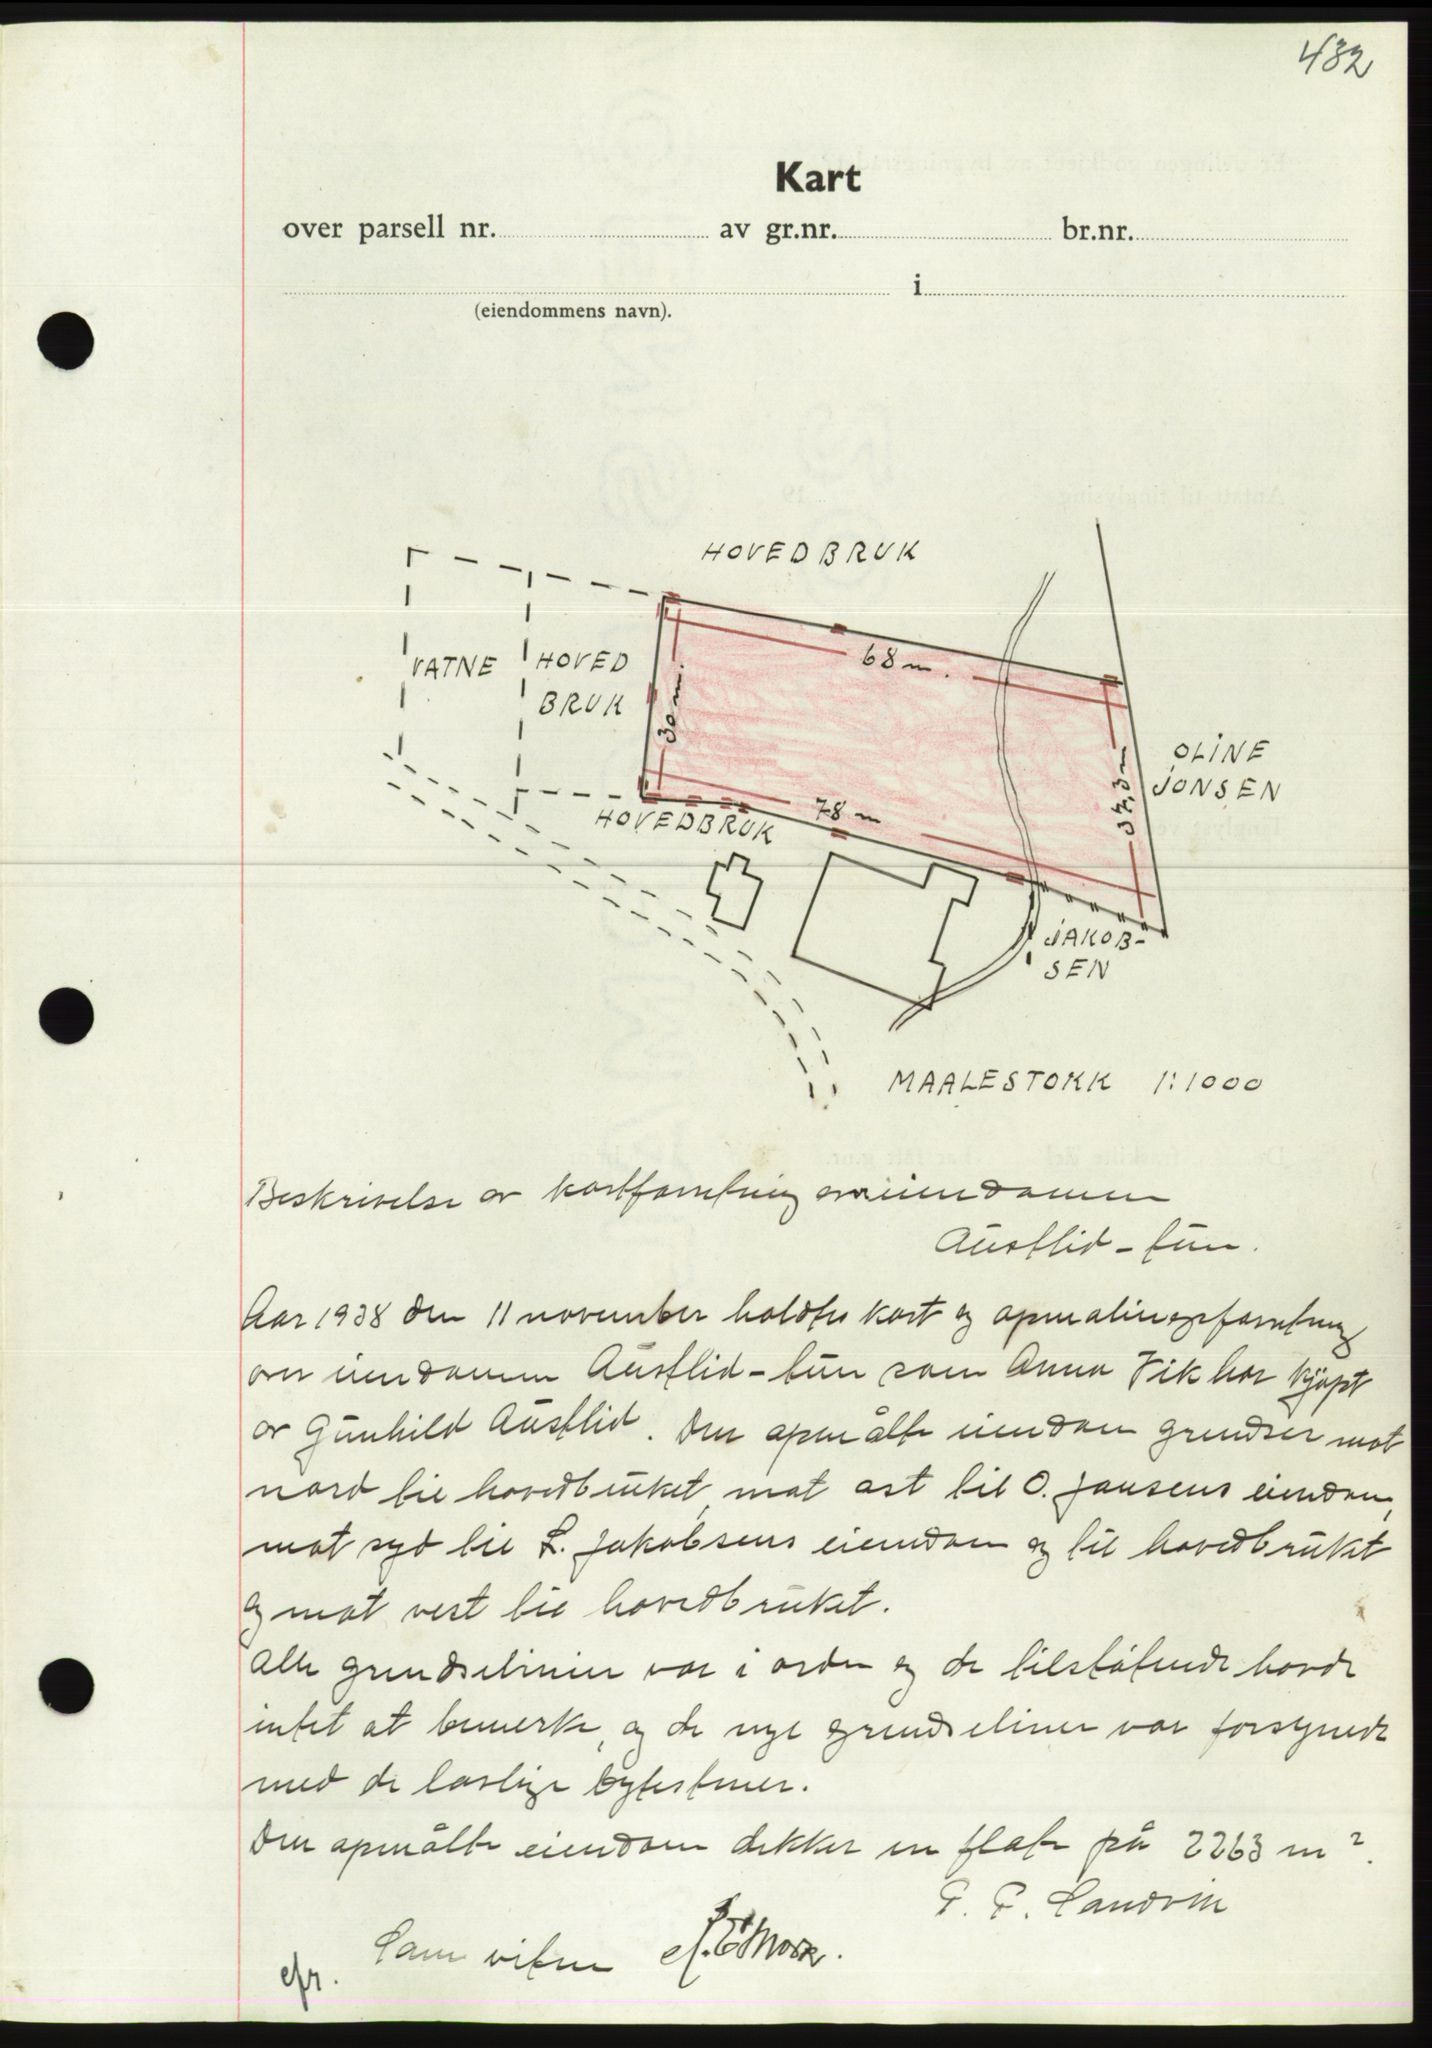 432
Kart
over parsell nr. av gr.nr. br.nr.
i
(eiendommens navn).
HOVEDBRUK
VATNE
HOVED
BRUK
68 m.
30 m.
OLINE
JONSEN
37,3 m
78 m
HOVEDBRUK
JAKOB-
SEN
MAALESTOKK 1:1000
Beskrivelse av kartforretning over eiendommen
Austlid-tun.
Aar 1938 den 11 november holdtes kart og opmalingsforretning
over eiendommen Austlid-tun som Anna Vik har kjøpt
av Gunhild Austlid. Den opmålte eiendom grendser mot
nord til hovedbruket, mot ost til O. Jonsens eiendom,
mot syd til L. Jakobsens eiendom og til hovedbruket
og mot vest til hovedbruket.
Alle grendselinier var i orden og de tilstøtende havde
intet at bemerke, og de nye grendseliner var forsynede
med de lovlige bytestener.
Den opmålte eiendom dekker en flate på 2263 m².
Sandvin
Som vitne
efr.